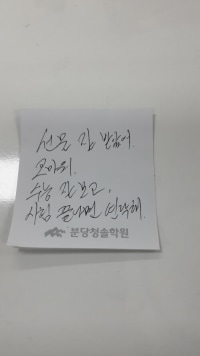 선물 잘 받았어.
고마워.
수능 잘 보고,
시험 끝나면 연락해.
분당청솔학원